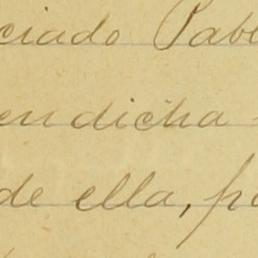 ciado Pabl
en dicha
de ella, po